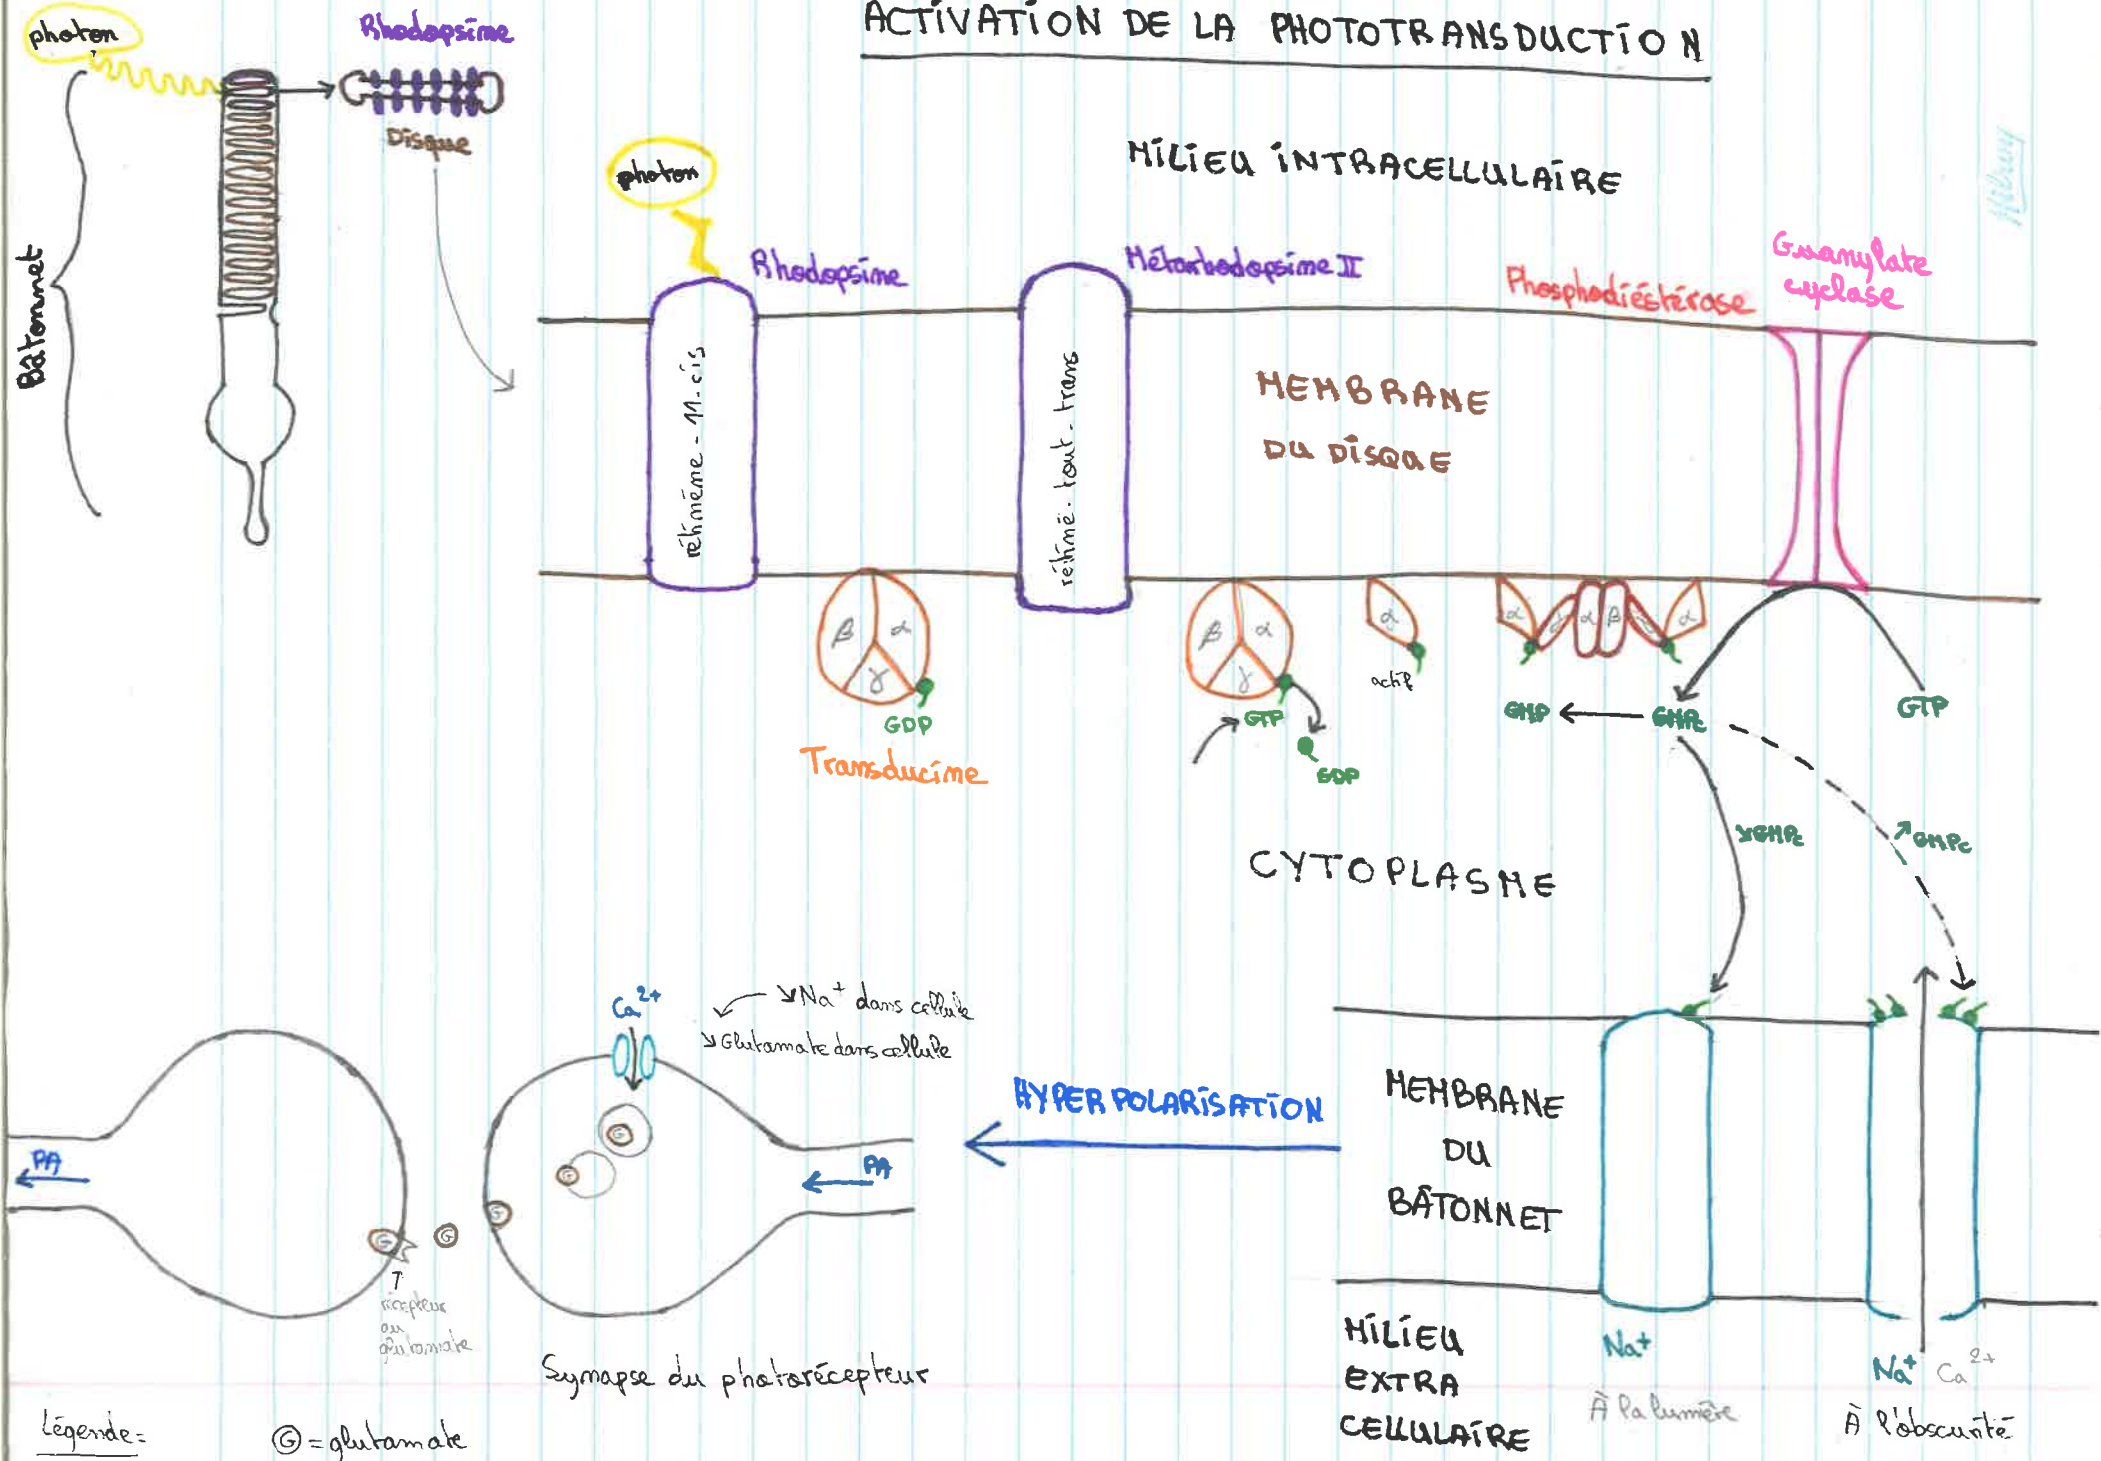 ACTIVATION DE LA PHOTOTRANSDUCTION
photon
Rhodopsine
Disque
Bâtonnet
MILIEU INTRACELLULAIRE
photon
Rhodopsine
Métarhodopsine II
Phosphodiéstérase
Guanylate
cyclase
rétinène - 11 - cis
rétiné - tout - trans
MEMBRANE
DU DISQUE
β α γ
GDP
Transducine
β α γ
GTP
GDP
α
actif
α γ α β α
GMP
GMPc
GTP
↘GMPc
↗GMPc
CYTOPLASME
Ca²⁺
↘Na⁺ dans cellule
↘Glutamate dans cellule
HYPERPOLARISATION
MEMBRANE
DU
BÂTONNET
PA
PA
G
G
G
G
récepteur
au
glutamate
Synapse du photorécepteur
MILIEU
EXTRA
CELLULAIRE
Na⁺
À la lumière
Na⁺ Ca²⁺
À l'obscurité
Légende =
G = glutamate